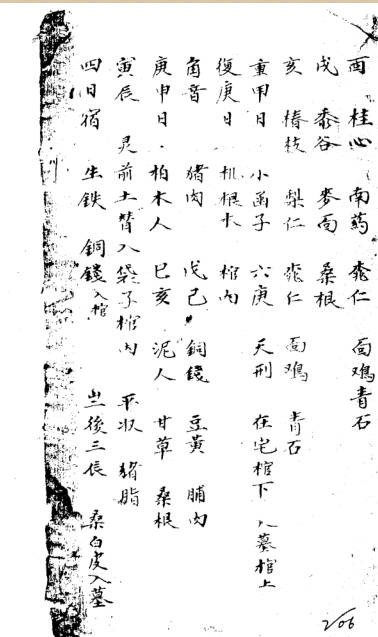 酉　桂心　南药　桃仁　面鸡青石
戌　黍谷　麥面　桑根
亥　椿枝　梨仁　桃仁　面鸡　青石
重甲日　小函子　六庚　天刑　在宅棺下　入墓棺上
復庚日　机根木　棺内
角音　猪肉　戊己　銅錢　豆黄　脯肉
庚申日　柏木人　巳亥　泥人　甘草　桑根
寅辰　灵前土替入袋子棺内　平收　猪脂
四日宿　生鉄　銅錢入棺　後三辰　桑白皮入墓
206